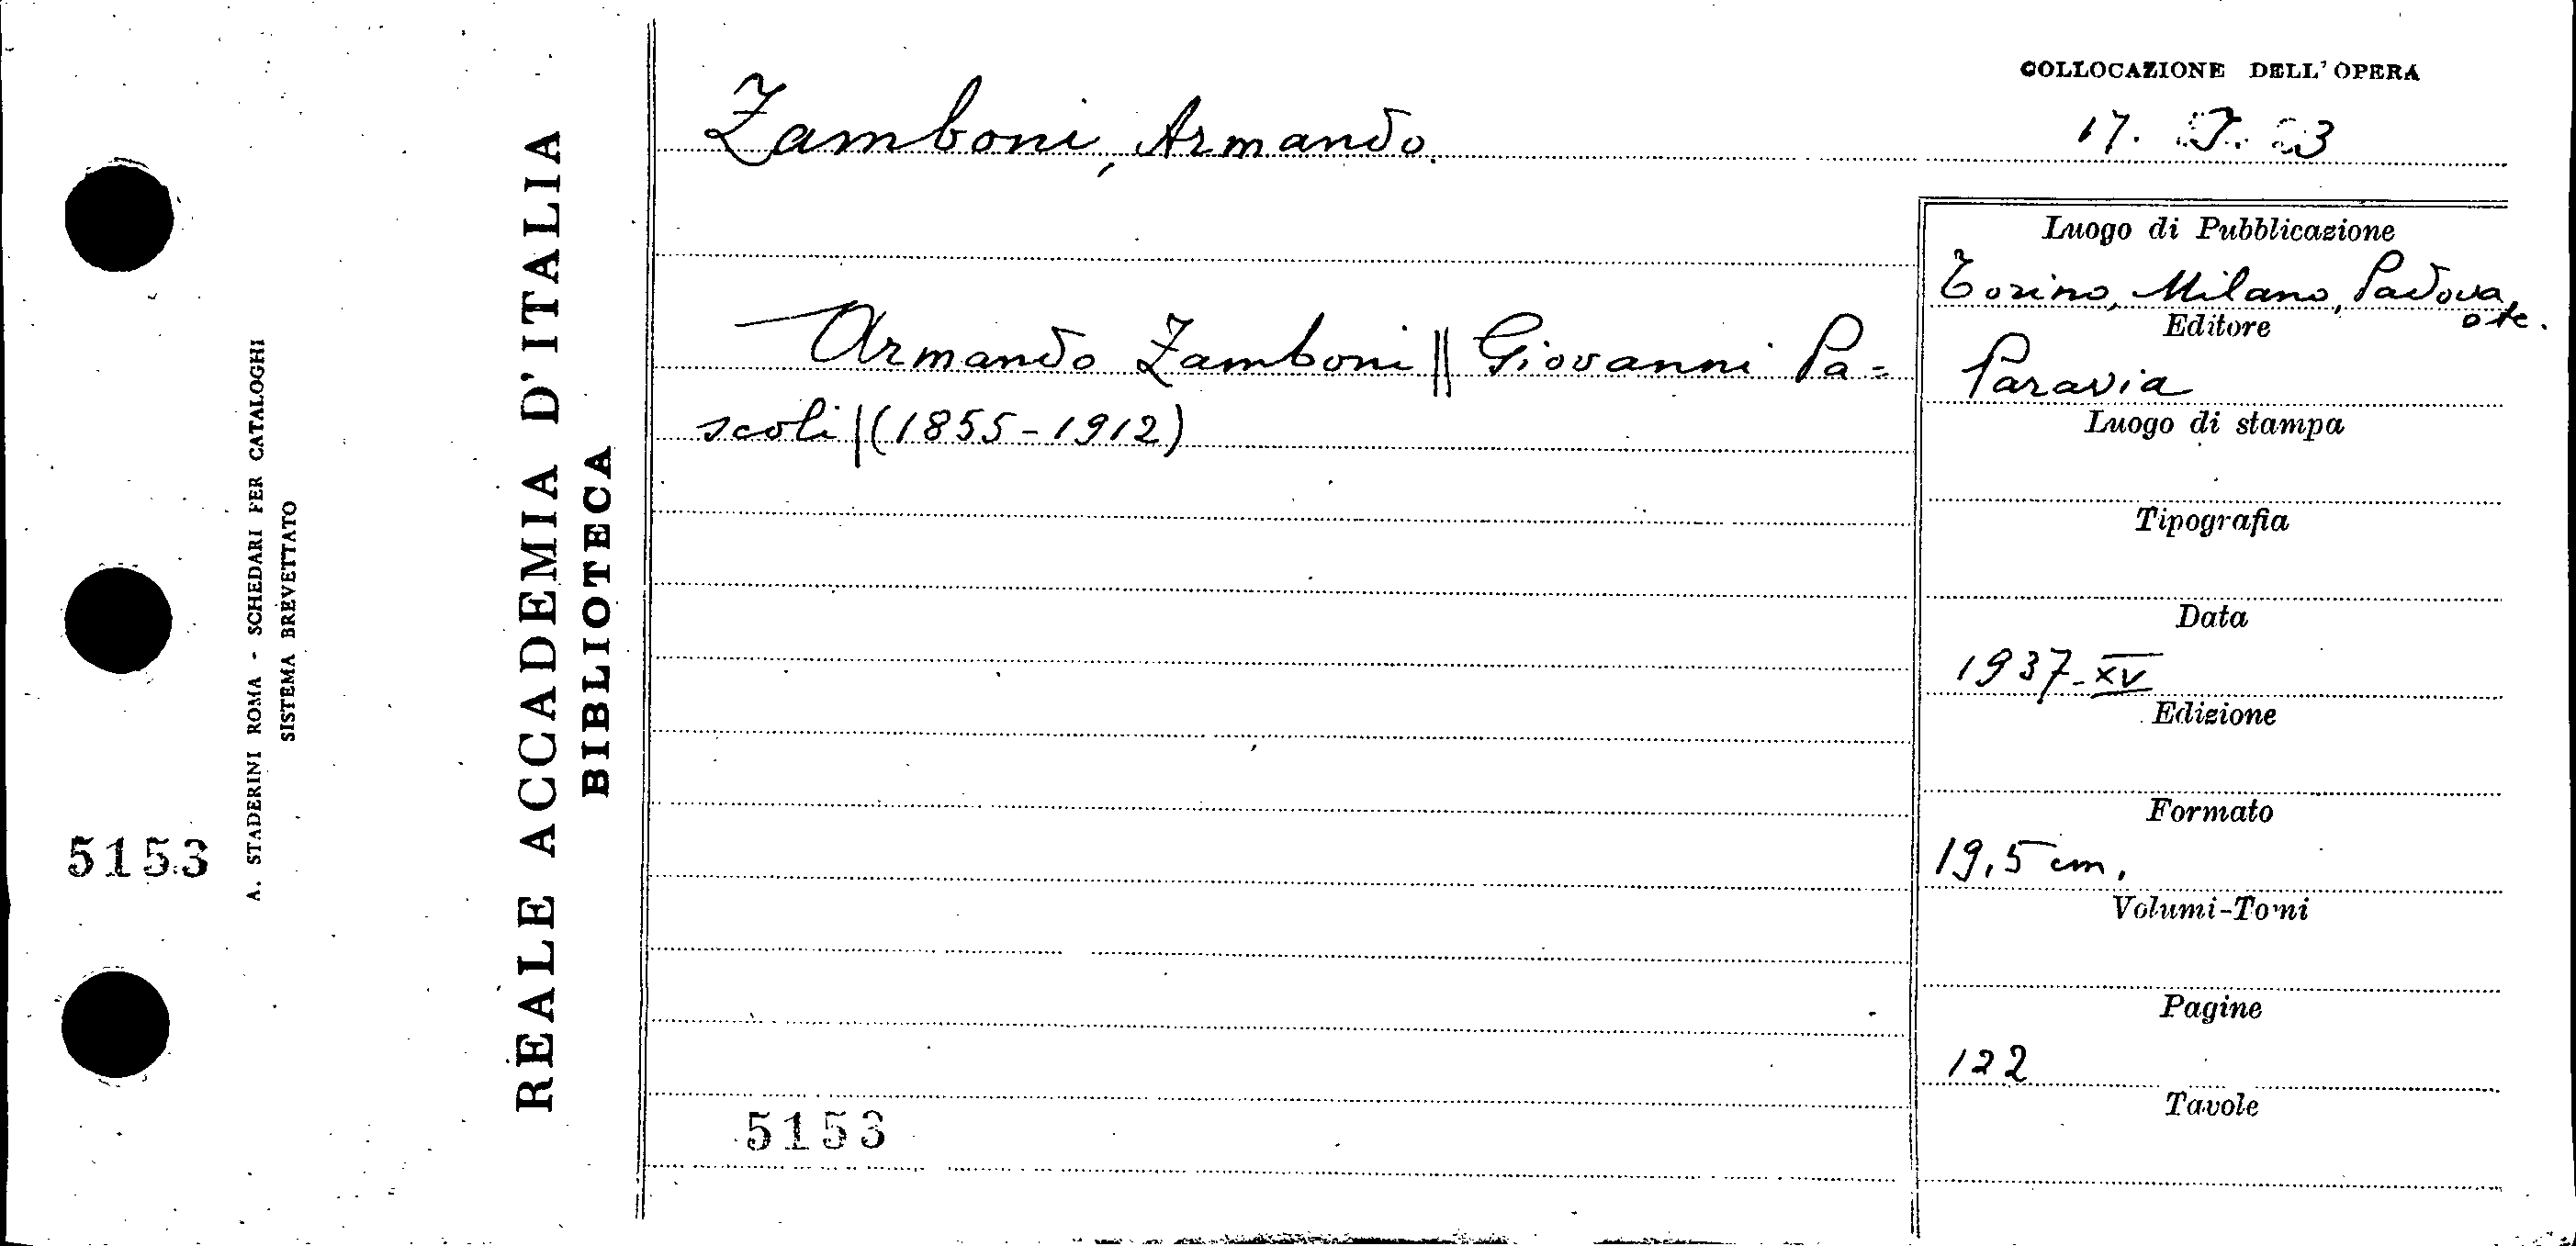 COLLOCAZIONE DELL'OPERA
17.
Zamboni, Armando.
Armando Zamboni || Giovanni Pa=
scoli | (1855-1912)
5153
Luogo di Pubblicazione
Torino, Milano, Padova,
etc.
Editore
Paravia
Luogo di stampa
Tipografia
Data
1937-XV
Edizione
Formato
19,5 cm.
Volumi-Tomi
Pagine
122
Tavole
REALE ACCADEMIA D'ITALIA
BIBLIOTECA
A. STADERINI ROMA - SCHEDARI PER CATALOGHI
SISTEMA BREVETTATO
5153